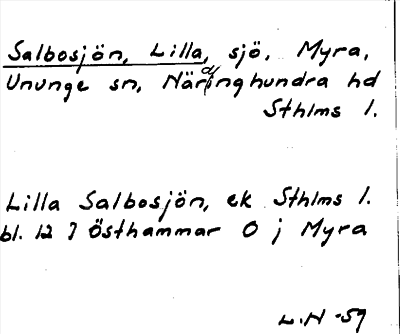 Salbosjön, Lilla, sjö, Myra,
Ununge sn, Närdinghundra hd
Sthlms l.
Lilla Salbosjön, ek Sthlms l.
bl. 12 I Östhammar O j Myra
L.N -59